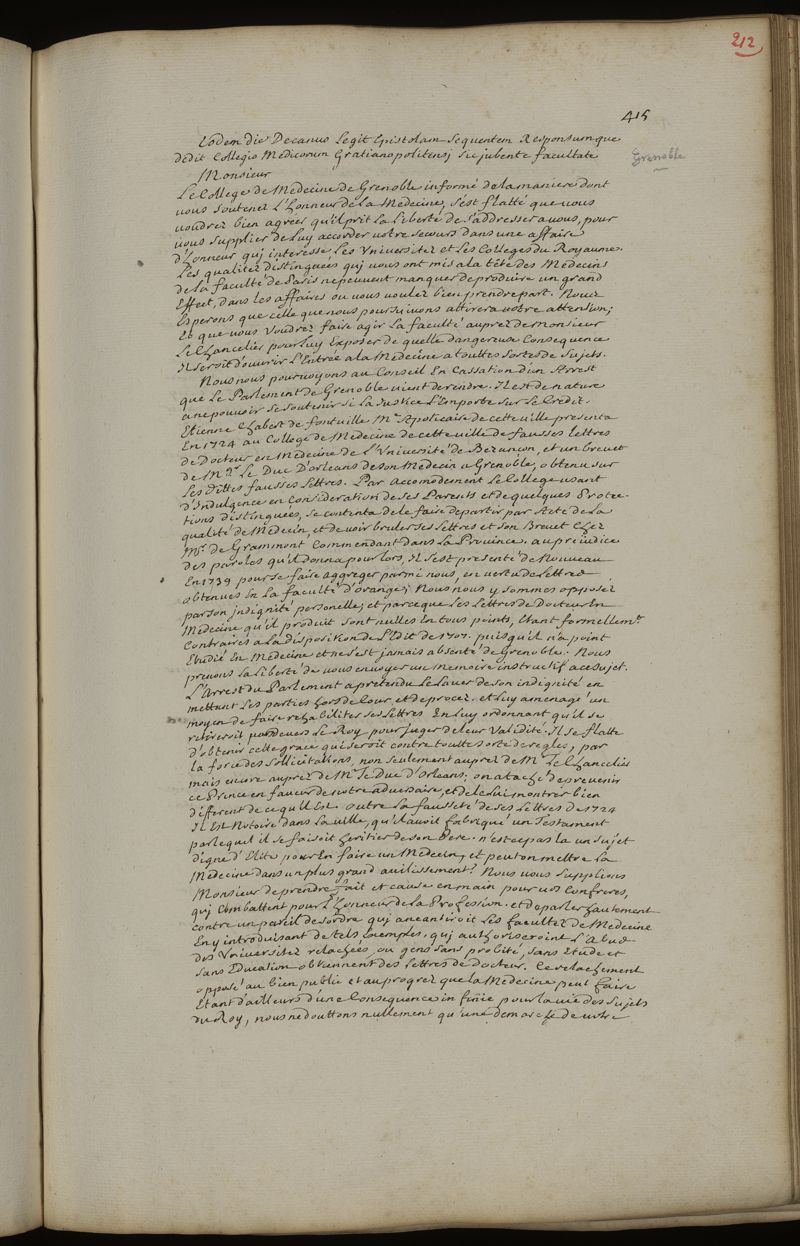 212
415
Eodem die Decanus Legit Epistolam Sequentem Responsumque
dedit Collegio Medicorum Gratianopolitensj Sic jubente facultate
Grenoble
Monsieur
Le College de Medecine de Grenoble informé de la maniere dont
vous soutenez L'honneur de La Medecine, s'est flatté que vous
voudrez bien agréer qu'il prit La Liberté de S'addresser a vous, pour
vous Supplier de Luy accorder votre secours dans une affaire
d'honneur quj interesse Les Vniversitez et Les Colleges du Royaume.
Les qualitez distinguées quj vous ont mis a la tête des Medecins
de La faculté de Paris ne peuvent manquer de produire un grand
Effect, dans les affaires ou vous voulez bien prendre part. Nous
Esperons que celle que nous poursuivons attirera votre attention;
Et que vous Voudrez faire agir La faculté auprez de Monsieur
Le Chancelier pour Luy Exposer de quelle dangereuse Consequence
Il seroit d'ouvrir L'Entrée a la Medecine a touttes Sortes de Sujets.
Nous nous pourvoyons au Conseil En Cassation d'un Arrest
que Le Parlement de Grenoble vient de rendre. Il est de nature
a ne pouvoir se soutenir si La Justice L'Emporte Sur Le Credit.
Etienne Chabert de fontville Me Apoticaire de cette ville presenta
En 1724 au College de Medecine de cette ville de fausses Lettres
de Docteur en Medecine de L'Vniversité de Bezançon, et un brevet
de Mgr Le Duc D'orleans de son Medecin a Grenoble, obtenu sur
Les dittes fausses Lettres. Par accomodement Le College usant
d'Indulgence en Consideration de ses Parents et de quelques Protec-
tions distinguées, se contenta de le faire departir par Acte de La
qualité de Medecin, et de voir bruler ses Lettres et son Brevet Chez
Mr. de Grammont Commendant dans La Province. au prejudice
des paroles qu'il donna pour lors, Il s'est presenté de Nouveau
En 1739 pour se faire aggreger parmi nous, en vertu de Lettres
obtenues En La faculté d'orange; Nous nous y sommes opposez
par son jndignité personelle; et parce que Les Lettres de Docteur En
Medecine qu'il produit sont nulles En tous points, Etant formellemt
Contraires a La disposition de L'Edit de 1707. puisqu'il n'a point
Etudié En Medecine et ne s'est jamais absenté de Grenoble. Nous
prenons La liberté de vous envoyer un memoire instructif a ce Sujet.
L'Arrest du Parlement a pretendu Le Laver de son indignité en
mettant Les parties hors de Cour, et de procez. et Luy a menagé un
moyen de faire rehabiliter ses Lettres En Luy ordonnant qu'il se
retireroit pardevers Le Roy pour juger de leur Validité. Il se flatte
d'obtenir cette grace qui seroit contre toutte sorte de regles, par
la force des sollicitations, non seulement auprez de Mr Le Chancelier
mais encore auprez de Mr Le Duc d'Orleans; on a taché de prevenir
ce Prince en faveur de notre adversaire, et de le lui montrer bien
different de ce qu'il Est. outre La fausseté de ses Lettres De 1724
Il Est Notoire dans La ville, qu'il avoit fabriqué un Testament
par lequel il se faisoit heritier de son Pere. n'est ce pas la un sujet
digne d'Elite pour En faire un Medecin, et peut on mettre La
Medecine dans un plus grand avilissement? Nous vous supplions
Monsieur de prendre fait et cause en main pour vos Confreres,
quj Combattent pour L'honneur de La Profession. et de parler hautement
contre un pareil desordre quj aneantiroit Les facultez de Medecine
En y introduisant de tels Exemples, quj authoriseroint L'Abus
des Vniversitez relachées, ou gens sans probité, sans Etude et
sans Education obtiennent des Lettres de Docteur. Ce relachement
opposé au bien public et au progrez que La Medecine peut faire
Etant d'ailleurs d'une Consequence infinie pour la vie des Sujets
du Roy, nous ne douttons nullement qu'une demarche de votre